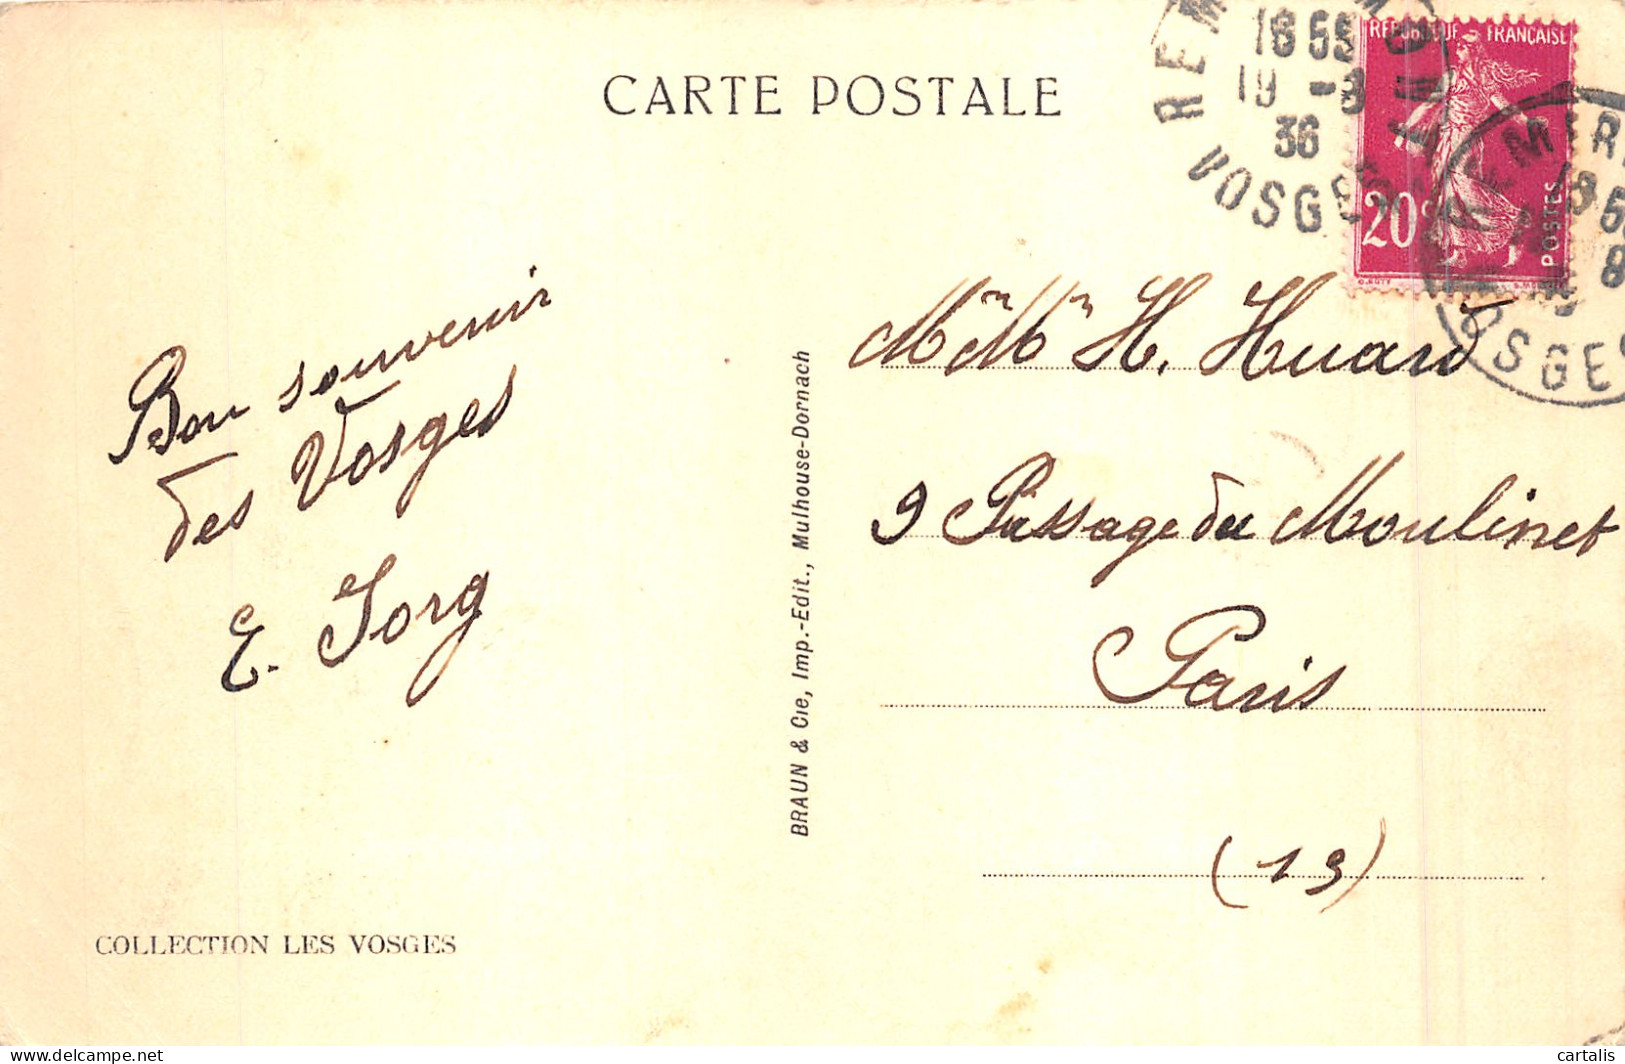 CARTE POSTALE
REMIREMONT
18 55
19 -8
36
VOSGES
REPUBLIQUE FRANÇAISE
20c
POSTES
VOSGES
Bon souvenir
des Vosges
E. Jorg
BRAUN & Cie, Imp.-Edit., Mulhouse-Dornach
Mr Mme H. Huard
9 Passage du Moulinet
Paris
(13)
COLLECTION LES VOSGES
cartalis